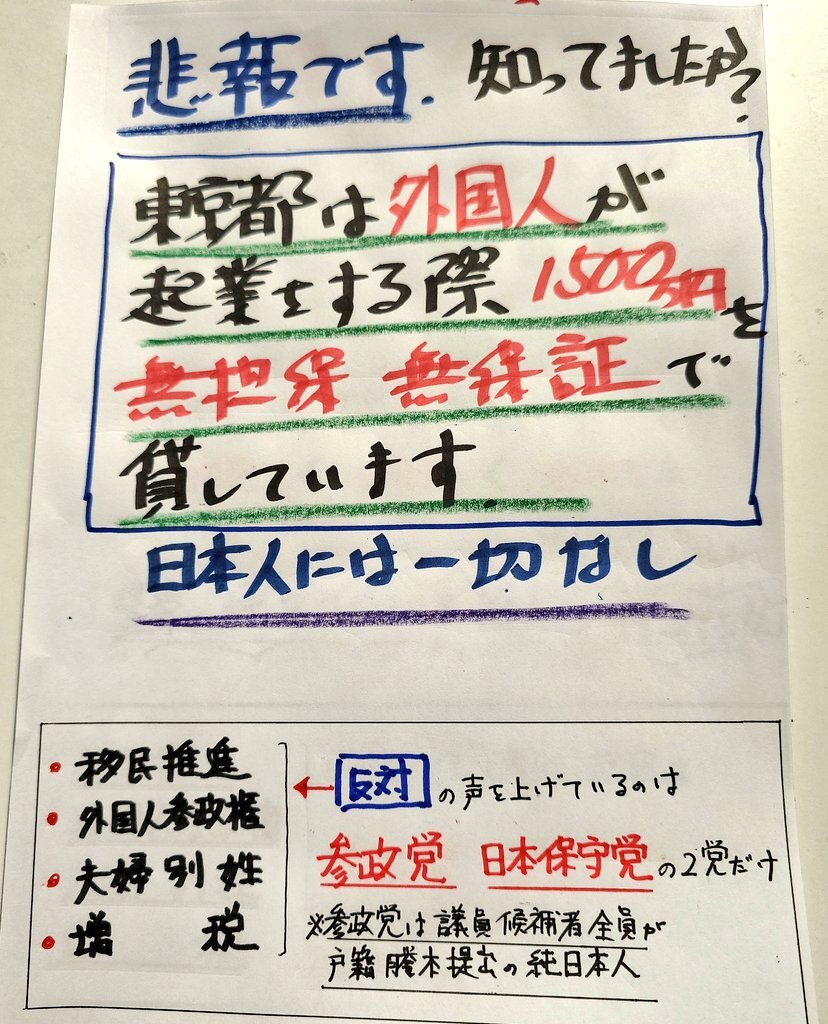 悲報です. 知ってましたか?
東京都は外国人が
起業をする際1500万円を
無担保 無保証で
貸しています.
日本人には一切なし
・移民推進
・外国人参政権
・夫婦別姓
・増 税
← 反対の声を上げているのは
参政党 日本保守党の2党だけ
※参政党は議員候補者全員が
戸籍謄本提出の純日本人